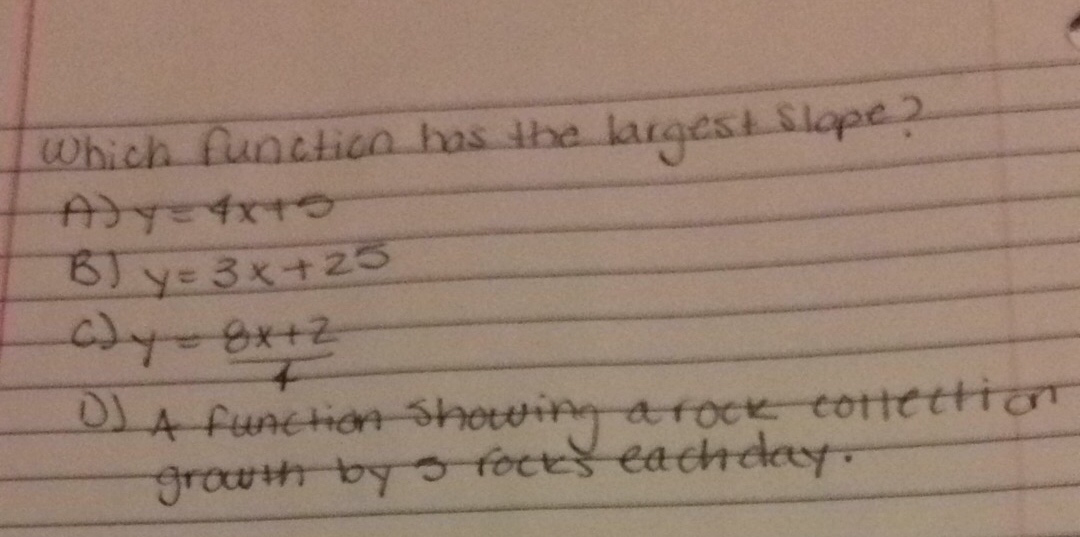 Which function has the largest slope?
A) y = 4x+5
B) y= 3x+25
C) y = 8x+2
4
D) A function showing a rock collection
growth by rocks each day.